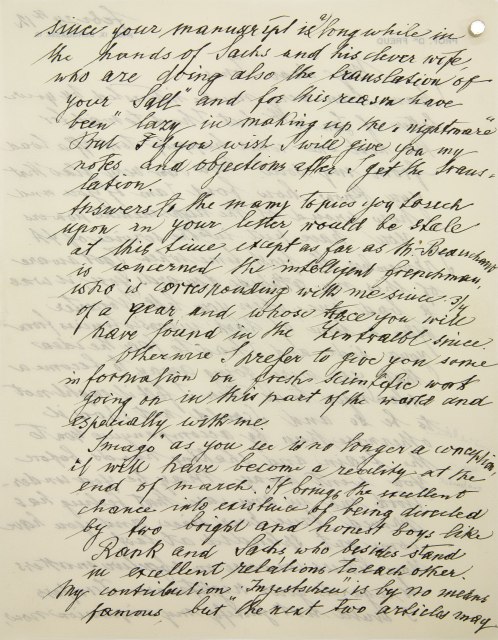 since your manuscript is "long while in
the hands of Sachs and his clever wife,
who are doing also the translation of
your "Salt" and for this reason have
been lazy in making up the "nightmare"
But if you wish I will give you my
notes and objections after I get the trans-
lation.
Answers to the many topics you touch
upon in your letter would be stale
at this time except as far as Mr. Beauchant
is concerned the intelligent frenchman,
who is corresponding with me since 3/4
of a year and whose trace you will
have found in the Zentralbl since
Otherwise I prefer to give you some
information on fresh scientific work
going on in this part of the world and
especially with me.
"Imago" as you see is no longer a conception,
it will have become a reality at the
end of march. It brings the excellent
chance into existence of being directed
by two bright and honest boys like
Rank and Sachs, who besides stand
in excellent relations to each other.
My contribution is by no means
famous, but the next two articles may